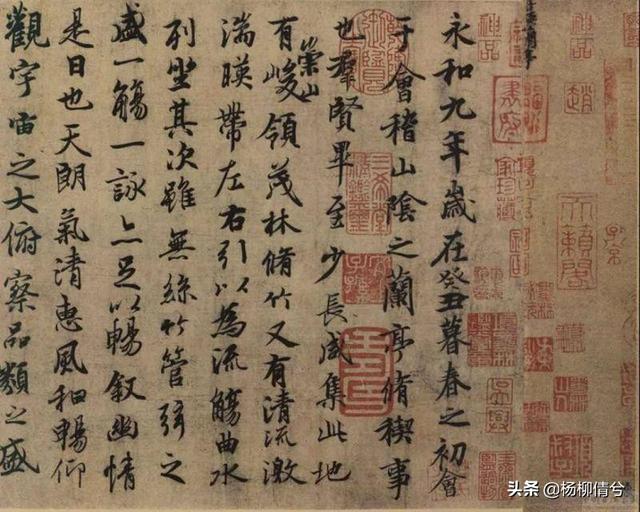 神品
天籟閣
神品
永和九年歲在癸丑暮春之初會
于會稽山陰之蘭亭脩稧事
也羣賢畢至少長咸集此地
有崇山峻領茂林脩竹又有清流激
湍暎帶左右引以為流觴曲水
列坐其次雖無絲竹管弦之
盛一觴一詠亦足以暢叙幽情
是日也天朗氣清惠風和暢仰
觀宇宙之大俯察品類之盛
头条 @杨柳倩兮